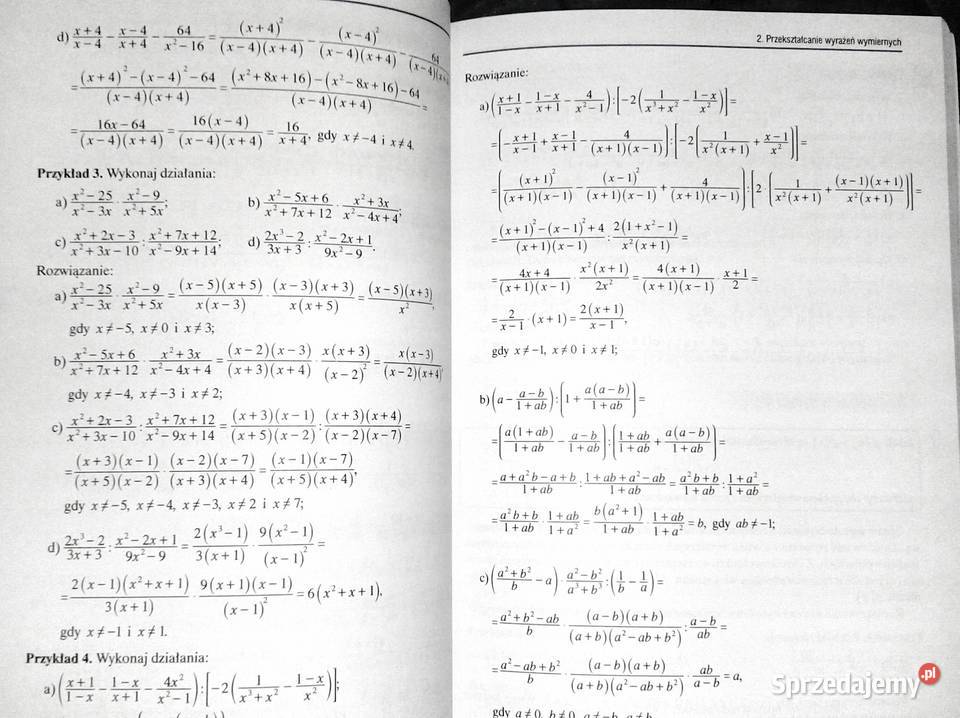 d) \frac{x+4}{x-4} - \frac{x-4}{x+4} - \frac{64}{x^2-16} = \frac{(x+4)^2}{(x-4)(x+4)} - \frac{(x-4)^2}{(x-4)(x+4)} - \frac{64}{(x-4)(x+
= \frac{(x+4)^2-(x-4)^2-64}{(x-4)(x+4)} = \frac{(x^2+8x+16)-(x^2-8x+16)-64}{(x-4)(x+4)} =
= \frac{16x-64}{(x-4)(x+4)} = \frac{16(x-4)}{(x-4)(x+4)} = \frac{16}{x+4}, gdy x≠-4 i x≠4.
Przykład 3. Wykonaj działania:
a) \frac{x^2-25}{x^2-3x} · \frac{x^2-9}{x^2+5x}; b) \frac{x^2-5x+6}{x^2+7x+12} · \frac{x^2+3x}{x^2-4x+4};
c) \frac{x^2+2x-3}{x^2+3x-10} : \frac{x^2+7x+12}{x^2-9x+14}; d) \frac{2x^3-2}{3x+3} : \frac{x^2-2x+1}{9x^2-9}.
Rozwiązanie:
a) \frac{x^2-25}{x^2-3x} · \frac{x^2-9}{x^2+5x} = \frac{(x-5)(x+5)}{x(x-3)} · \frac{(x-3)(x+3)}{x(x+5)} = \frac{(x-5)(x+3)}{x^2},
gdy x≠-5, x≠0 i x≠3;
b) \frac{x^2-5x+6}{x^2+7x+12} · \frac{x^2+3x}{x^2-4x+4} = \frac{(x-2)(x-3)}{(x+3)(x+4)} · \frac{x(x+3)}{(x-2)^2} = \frac{x(x-3)}{(x-2)(x+4)},
gdy x≠-4, x≠-3 i x≠2;
c) \frac{x^2+2x-3}{x^2+3x-10} : \frac{x^2+7x+12}{x^2-9x+14} = \frac{(x+3)(x-1)}{(x+5)(x-2)} : \frac{(x+3)(x+4)}{(x-2)(x-7)} =
= \frac{(x+3)(x-1)}{(x+5)(x-2)} · \frac{(x-2)(x-7)}{(x+3)(x+4)} = \frac{(x-1)(x-7)}{(x+5)(x+4)},
gdy x≠-5, x≠-4, x≠-3, x≠2 i x≠7;
d) \frac{2x^3-2}{3x+3} : \frac{x^2-2x+1}{9x^2-9} = \frac{2(x^3-1)}{3(x+1)} · \frac{9(x^2-1)}{(x-1)^2} =
= \frac{2(x-1)(x^2+x+1)}{3(x+1)} · \frac{9(x+1)(x-1)}{(x-1)^2} = 6(x^2+x+1),
gdy x≠-1 i x≠1.
Przykład 4. Wykonaj działania:
a) (\frac{x+1}{1-x} - \frac{1-x}{x+1} - \frac{4x^2}{x^2-1}) : [-2(\frac{1}{x^3+x^2} - \frac{1-x}{x^2})];
2. Przekształcanie wyrażeń wymiernych
Rozwiązanie:
a) (\frac{x+1}{1-x} - \frac{1-x}{x+1} - \frac{4}{x^2-1}) : [-2(\frac{1}{x^3+x^2} - \frac{1-x}{x^2})] =
= (-\frac{x+1}{x-1} + \frac{x-1}{x+1} - \frac{4}{(x+1)(x-1)}) : [-2(\frac{1}{x^2(x+1)} + \frac{x-1}{x^2})] =
= (\frac{(x+1)^2}{(x+1)(x-1)} - \frac{(x-1)^2}{(x+1)(x-1)} + \frac{4}{(x+1)(x-1)}) : [2 · (\frac{1}{x^2(x+1)} + \frac{(x-1)(x+1)}{x^2(x+1)})] =
= \frac{(x+1)^2-(x-1)^2+4}{(x+1)(x-1)} : \frac{2(1+x^2-1)}{x^2(x+1)} =
= \frac{4x+4}{(x+1)(x-1)} · \frac{x^2(x+1)}{2x^2} = \frac{4(x+1)}{(x+1)(x-1)} · \frac{x+1}{2} =
= \frac{2}{x-1} · (x+1) = \frac{2(x+1)}{x-1},
gdy x≠-1, x≠0 i x≠1;
b) (a - \frac{a-b}{1+ab}) : [1 + \frac{a(a-b)}{1+ab}] =
= (\frac{a(1+ab)}{1+ab} - \frac{a-b}{1+ab}) : [\frac{1+ab}{1+ab} + \frac{a(a-b)}{1+ab}] =
= \frac{a+a^2b-a+b}{1+ab} : \frac{1+ab+a^2-ab}{1+ab} = \frac{a^2b+b}{1+ab} : \frac{1+a^2}{1+ab} =
= \frac{a^2b+b}{1+ab} · \frac{1+ab}{1+a^2} = \frac{b(a^2+1)}{1+ab} · \frac{1+ab}{1+a^2} = b, gdy ab≠-1;
c) (\frac{a^2+b^2}{b} - a) · \frac{a^2-b^2}{a^3+b^3} : (\frac{1}{b} - \frac{1}{a}) =
= \frac{a^2+b^2-ab}{b} · \frac{(a-b)(a+b)}{(a+b)(a^2-ab+b^2)} : \frac{a-b}{ab} =
= \frac{a^2-ab+b^2}{b} · \frac{(a-b)(a+b)}{(a+b)(a^2-ab+b^2)} · \frac{ab}{a-b} = a,
gdy a≠0, b≠0,
Sprzedajemy.pl